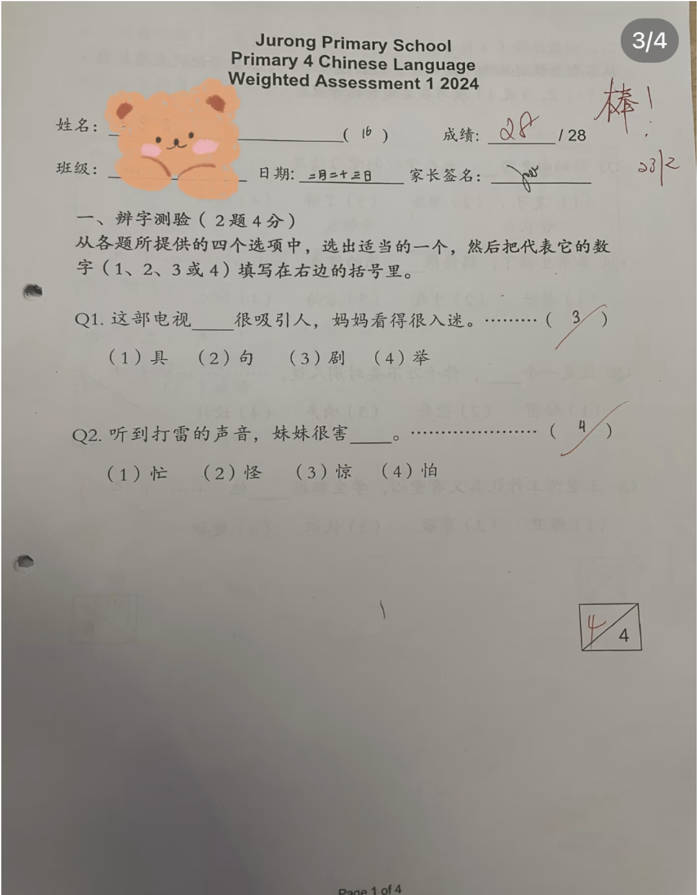 3/4
Jurong Primary School
Primary 4 Chinese Language
Weighted Assessment 1 2024
棒！
姓名： ( 16 ) 成绩: 28 / 28
23/2
班级： 日期: 二月二十三日 家长签名：
一、辨字测验（ 2 题 4 分）
从各题所提供的四个选项中，选出适当的一个，然后把代表它的数
字（ 1、2、3 或 4 ）填写在右边的括号里。
Q1. 这部电视____很吸引人，妈妈看得很入迷。………（ 3 ）
（ 1 ）具 （ 2 ）句 （ 3 ）剧 （ 4 ）举
Q2. 听到打雷的声音，妹妹很害____。…………………（ 4 ）
（ 1 ）忙 （ 2 ）怪 （ 3 ）惊 （ 4 ）怕
4/4
Page 1 of 4